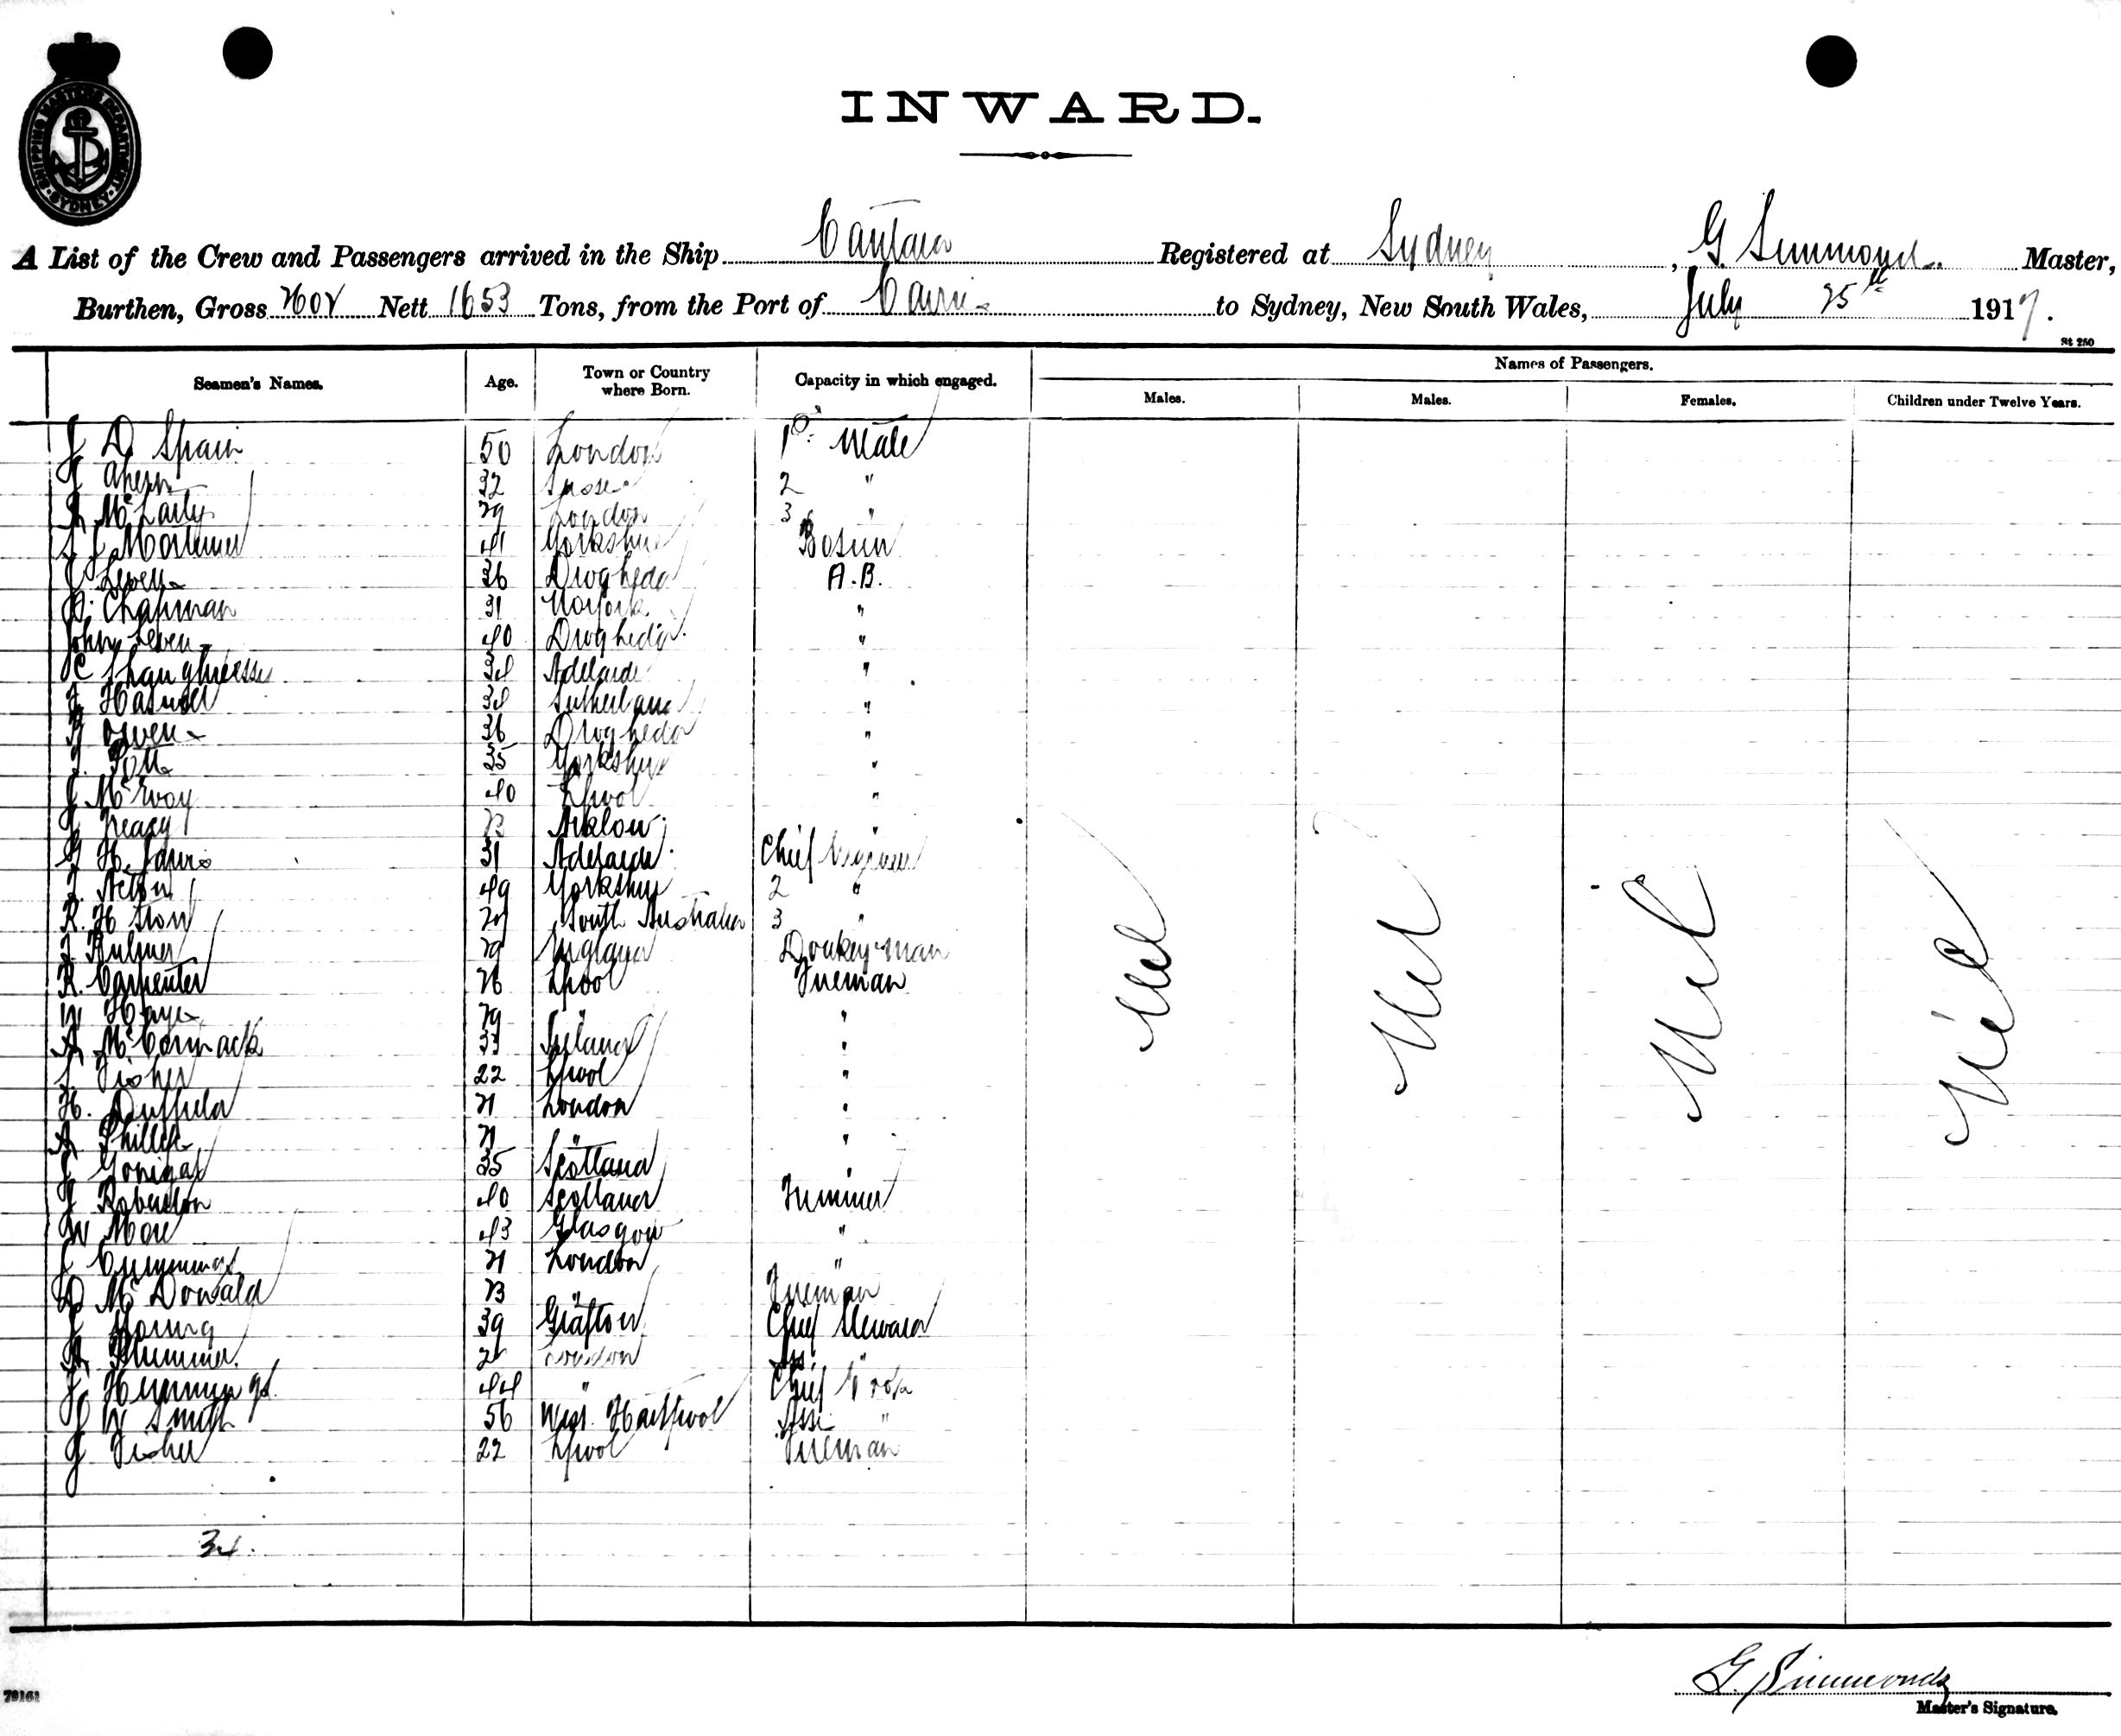 SHIPPING MASTERS DEPARTMENT
SYDNEY
INWARD.
A List of the Crew and Passengers arrived in the Ship Registered at Sydney, G. Simmonds Master,
Burthen, Gross Nett 1653 Tons, from the Port of Cairns to Sydney, New South Wales, July 25th 1917.
St 250
Seamen's Names. Age. Town or Country where Born. Capacity in which engaged. Names of Passengers.
Males. Males. Females. Children under Twelve Years.
J D Spain 50 London 1st Mate
Ahern 32 2 "
McLarty 29 London 3 "
Mortimer 41 Yorkshire Bosun
J Leven 36 Drogheda A.B.
Chapman 31 Norfolk "
John Leven 40 Drogheda "
C Shaughnessy 34 Adelaide "
Haswell 38 Sutherland "
Owens 36 Drogheda "
Pott 35 Yorkshire "
J McEvoy 40 Lpool "
J Treacy 23 Arklow "
H. 31 Adelaide Chief Engineer
49 Yorkshire 2 "
R. H 29 South Australia 3 "
Bulmer 29 England Donkeyman
R. Carpenter 26 Lpool Fireman
W Hayes 29 " "
A McCormack 33 Ireland "
J. Fisher 22 Lpool "
H. Duffield 21 London "
A Phillips 21 " "
J Gonigal 35 Scotland "
J Robertson 40 Scotland Trimmer
W More 43 Glasgow "
J Cummings 21 London "
D McDonald 23 " Fireman
J Young 39 Grafton Chief Steward
A Plummer. 26 London Ass. "
J. Hemmings. 44 " Chief Cook
J W Smith 56 West Hartlpool Asst "
J Fisher 22 Lpool Fireman
Nil Nil Nil Nil
34.
G. Simmonds
Master's Signature.
79161